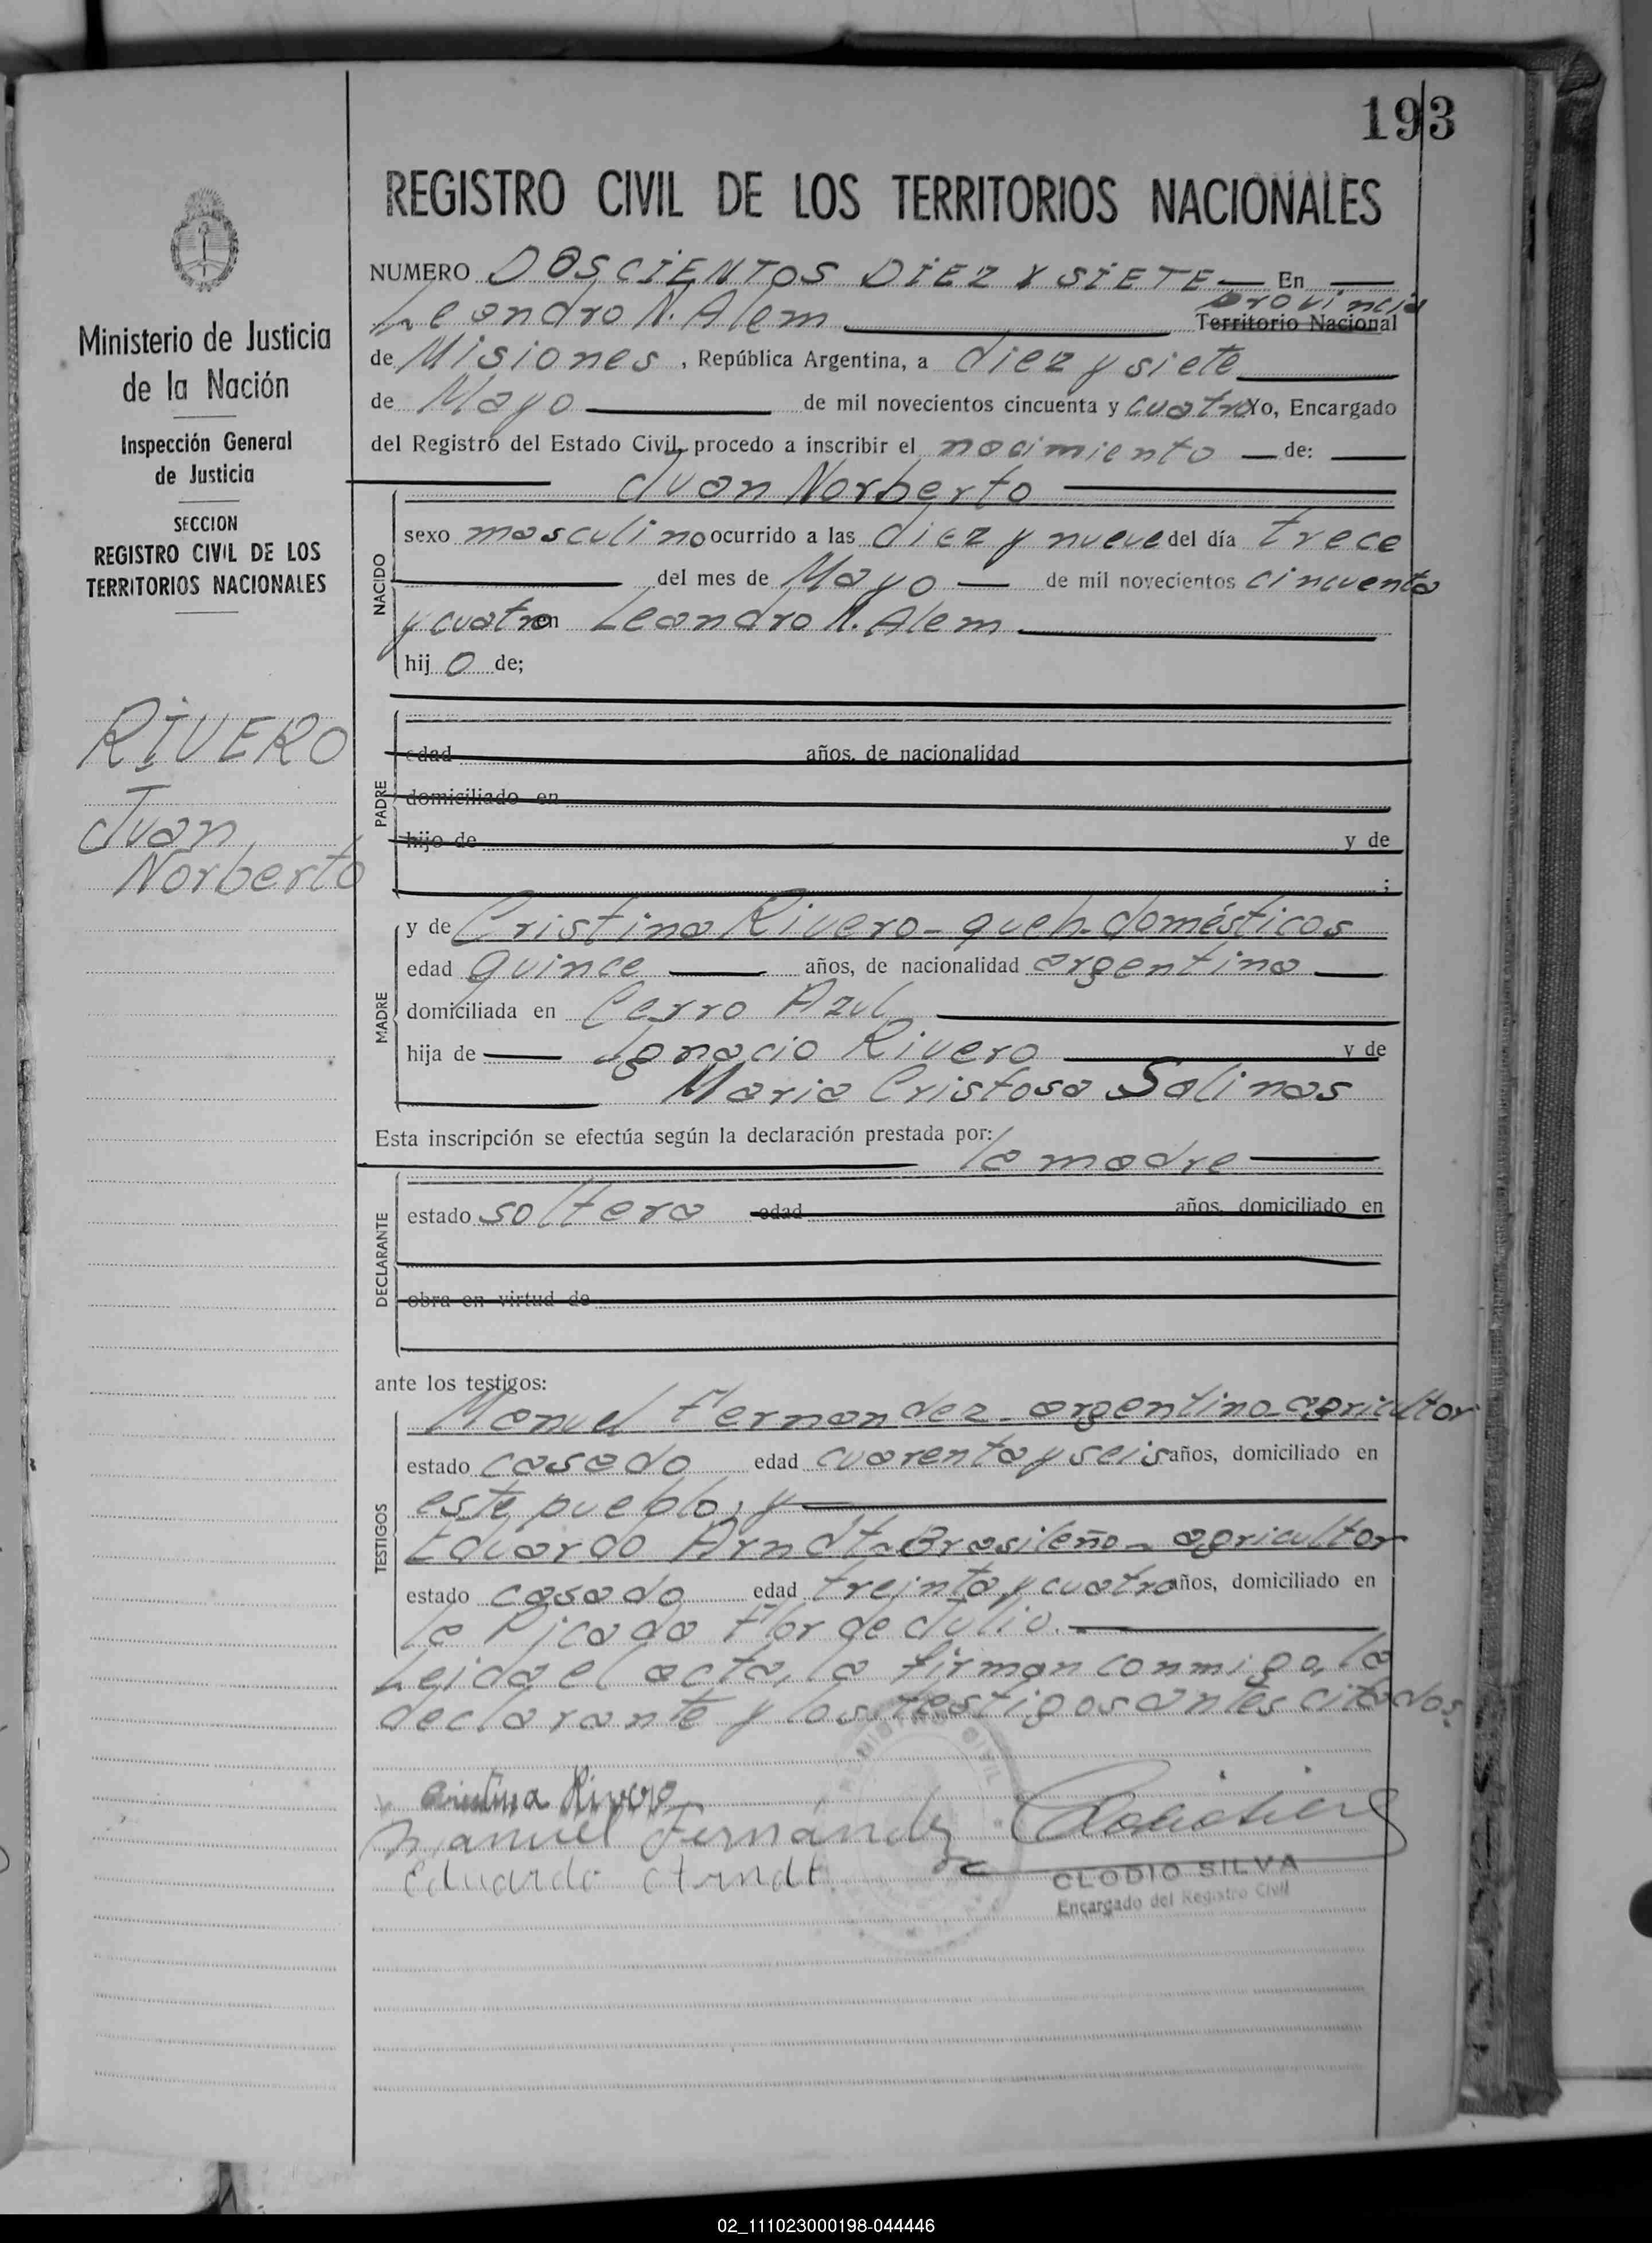 193
REGISTRO CIVIL DE LOS TERRITORIOS NACIONALES
NUMERO DOSCIENTOS DIEZ Y SIETE En
provincia
Leandro N. Alem Territorio Nacional
de Misiones, República Argentina, a diez y siete
de Mayo de mil novecientos cincuenta y cuatro Yo, Encargado
del Registro del Estado Civil, procedo a inscribir el nacimiento de:
Juan Norberto
NACIDO
sexo masculino ocurrido a las diez y nueve del día trece
del mes de Mayo de mil novecientos cincuenta
y cuatro en Leandro N. Alem
hijo de;
PADRE
edad años, de nacionalidad
domiciliado en
hijo de y de
;
MADRE
y de Cristina Rivero - queh. domésticos
edad quince años, de nacionalidad argentina
domiciliada en Cerro Azul
hija de Ignacio Rivero y de
Maria Cristosa Salinas
Esta inscripción se efectúa según la declaración prestada por:
la madre
DECLARANTE
estado soltera edad años, domiciliado en
obra en virtud de
ante los testigos:
TESTIGOS
Manuel Fernandez - argentino - agricultor
estado casado edad cuarenta y seis años, domiciliado en
este pueblo, y
Eduardo Arndt - Brasileño - agricultor
estado casado edad treinta y cuatro años, domiciliado en
la Picada Flor de Julio.
Leida el acta, la firman conmigo, la
declarante y los testigos antes citados.
Cristina Rivero
Manuel Fernández
Eduardo Arndt.
CLODIO SILVA
Encargado del Registro Civil
Ministerio de Justicia
de la Nación
Inspección General
de Justicia
SECCION
REGISTRO CIVIL DE LOS
TERRITORIOS NACIONALES
RIVERO
Juan
Norberto
02_111023000198-044446